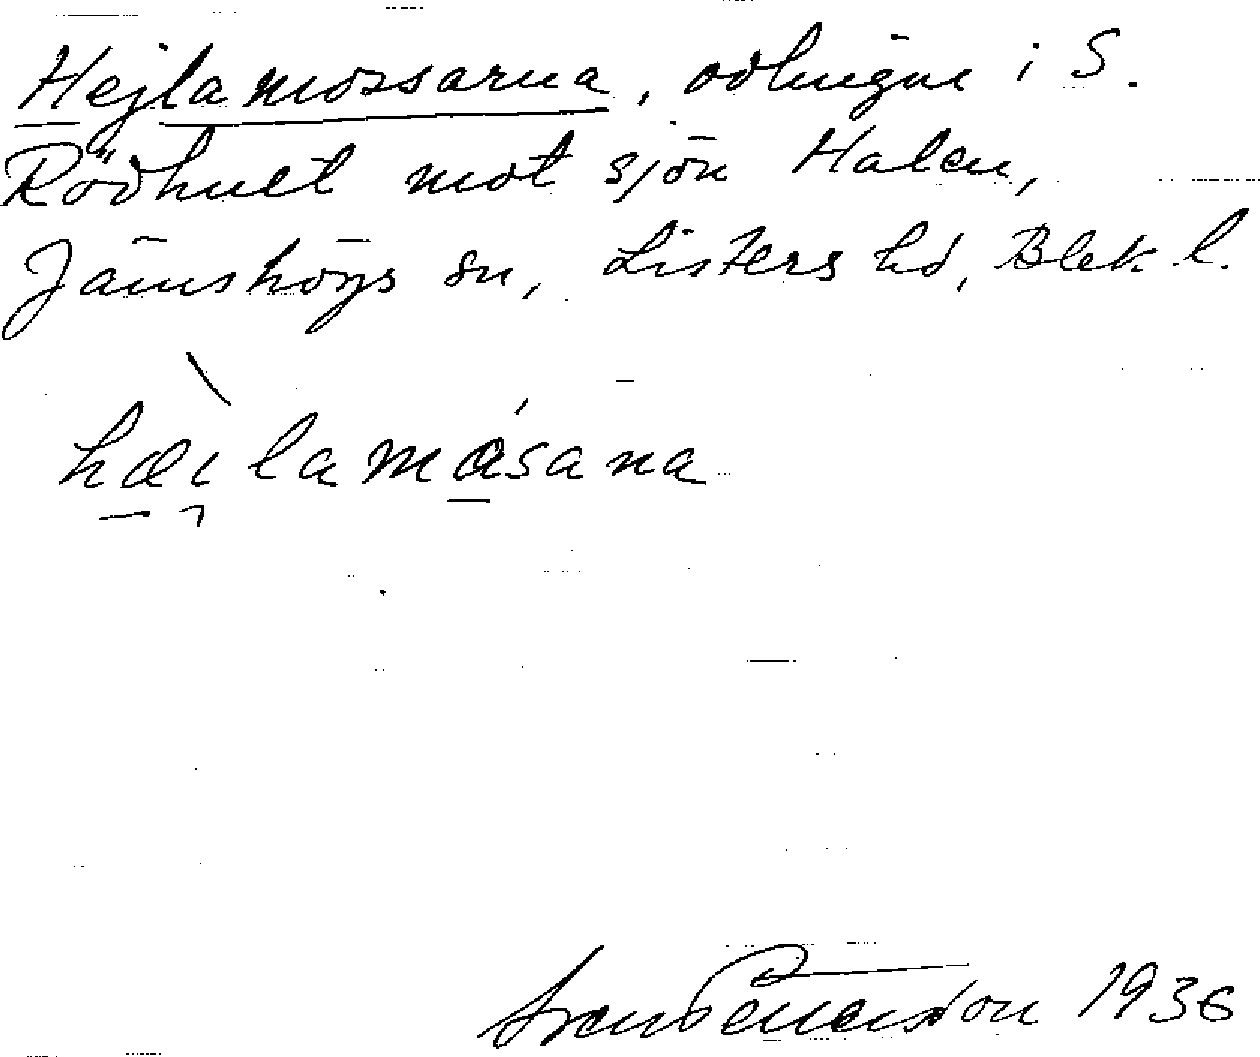 Hejlamossarna, odlingar i S.
Rödhult mot sjön Halen,
Jämshögs sn, Listers hd, Blek l.
hæi̯lamåsana
Sven Benson 1936